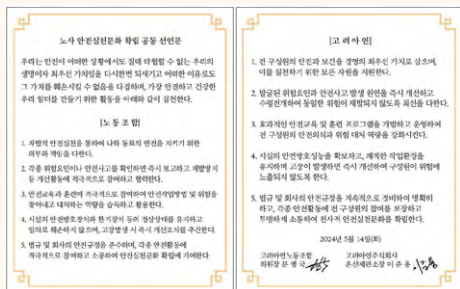 노사 안전실천문화 확립 공동 선언문
우리는 안전이 어떠한 상황에서도 절대 타협할 수 없는 우리의
생명이자 최우선 가치임을 다시한번 되새기고 어떠한 이유로도 그
가치를 훼손시킬 수 없음을 다짐하며, 가장 안전하고 건강한
우리 일터를 만들기 위한 활동을 아래와 같이 실천한다.
[노동조합]
1. 자발적 안전실천을 통하여 나와 동료의 안전을 지키기 위한
의무와 책임을 다한다.
2. 각종 위험요인이나 안전사고를 확인하면 즉시 보고하고 재발방지
등 개선활동에 적극적으로 참여하고 협력한다.
3. 안전교육과 훈련에 적극적으로 참여하여 안전작업방법 및 위험을
찾아내고 대처하는 역량을 습득하고 활용한다.
4. 시설의 안전방호장치와 환기장치 등의 정상상태를 유지하고
임의로 훼손하지 않으며, 고장발생 시 즉시 개선조치를 추진한다.
5. 법규 및 회사의 안전규정을 준수하며, 각종 안전활동에
적극적으로 참여하고 소통하여 안전실천문화 확립에 기여한다.
[고려아연]
1. 전 구성원의 안전과 보건을 경영의 최우선 가치로 삼으며,
이를 실천하기 위한 모든 자원을 지원한다.
2. 발굴된 위험요인과 안전사고 발생 원인을 즉시 개선하고
수평전개하여 동일한 위험이 재발되지 않도록 최선을 다한다.
3. 효과적인 안전교육 및 훈련 프로그램을 개발하고 운영하여
전 구성원의 안전의식과 위험 대처 역량을 강화시킨다.
4. 시설의 안전방호성능을 확보하고, 쾌적한 작업환경을
유지하며 고장이 발생하면 즉시 개선하여 구성원이 위험에
노출되지 않도록 한다.
5. 법규 및 회사의 안전규정을 지속적으로 정비하여 명확히
하고, 각종 안전활동에 전 구성원의 참여를 보장하고
투명하게 소통하여 전사적 안전실천문화를 확립한다.
2024년 5월 14일(화)
고려아연노동조합 고려아연주식회사
위원장 문 병 국 온산제련소장 이 준 용